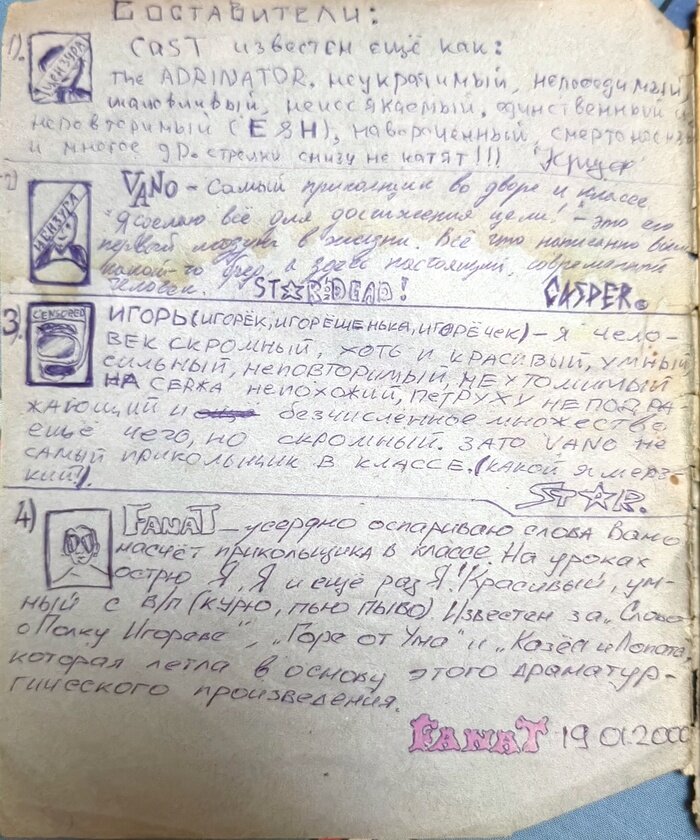 Составители:
1).
ЦЕНЗУРА
CAST известен ещё как:
The ADRINATOR, неукратимый, непободимый
неиссякаемый, единственный
неповторимый (ЕЯН), навороченный,
и многое др. стрелки снизу не катят!!!
2)
ЦЕНЗУРА
VANO - Самый приколщик во дворе и классе
"Я сделаю всё для достижения цели!" - это его
первый в жизни. Всё что написанно
бред, а здесь настоящий, современный
человек. ST☆R:DEAD! CASPER.
3.
CENSORED
ИГОРЬ (ИГОРЁК, ИГОРЁШЕНЬКА, ИГОРЁЧЕК) - Я ЧЕЛО-
ВЕК СКРОМНЫЙ, ХОТЬ И КРАСИВЫЙ, УМНЫЙ
СИЛЬНЫЙ, НЕПОВТОРИМЫЙ, НЕУТОМИМЫЙ
НА СЕРЖА НЕПОХОЖИЙ, ПЕТРУХУ НЕ ПОДРА-
ЖАЮЩИЙ И безчисленное множество
ещё чего, но скромный. ЗАТО VANO НЕ
САМЫЙ ПРИКОЛЬЩИК В КЛАССЕ. (КАКОЙ Я МЕРЗ-
КИЙ).
ST☆R.
4)
FANAT - усердно оспариваю слова Вано
насчёт прикольщика в классе. На уроках
острю Я, Я и ещё раз Я!! Красивый, ум-
ный с В/П (курю, пью пыво). Известен за „Слово
о Полку Игореве", „Горе от Ума" и „Козёл и Лопата
которая легла в основу этого драматур-
гического произведения.
FANAT 19.01.2000